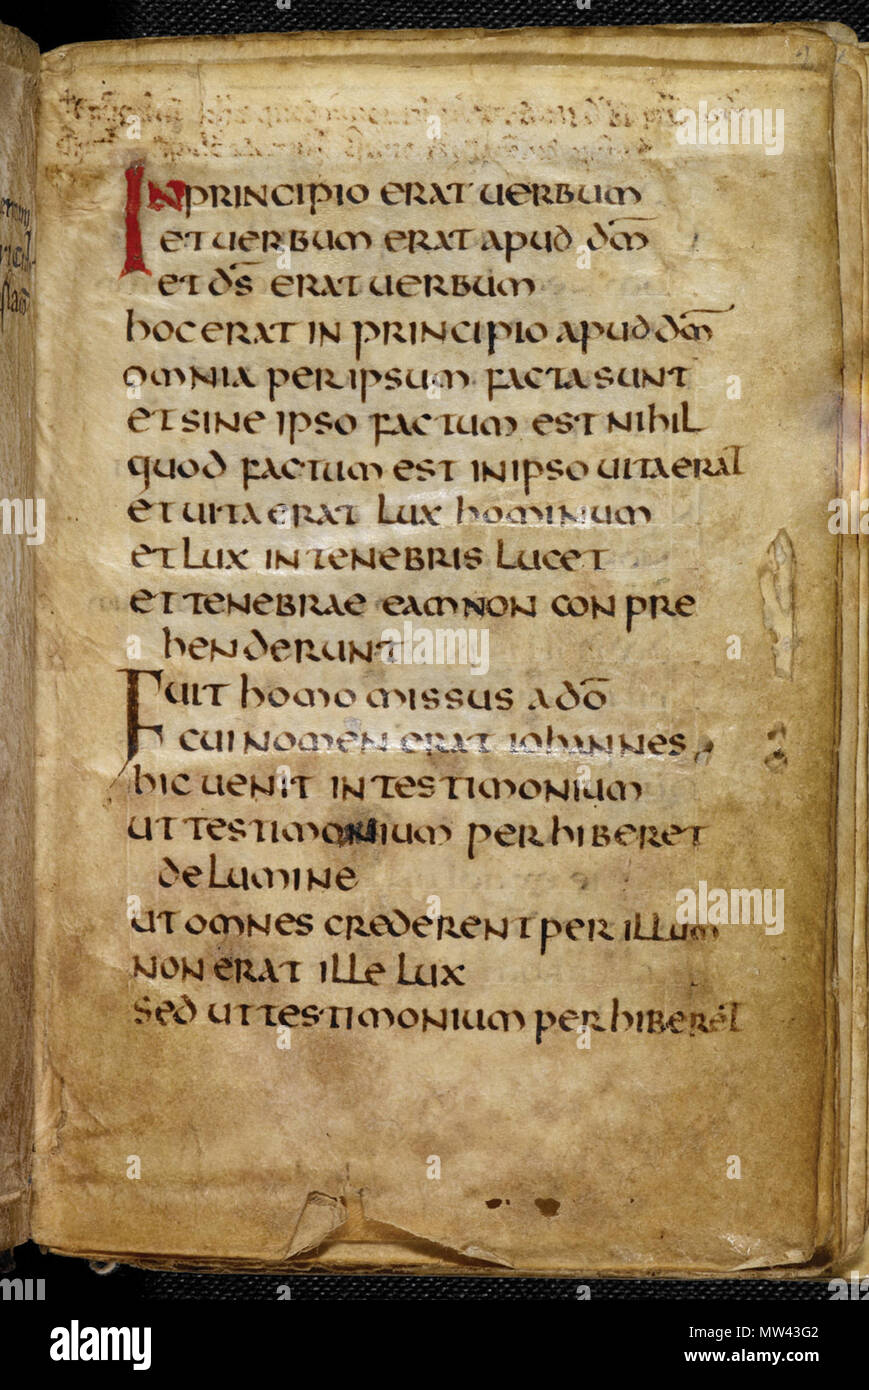 2
IN PRINCIPIO ERAT UERBUM
ET UERBUM ERAT APUD DM̄
ET DS̄ ERAT UERBUM
HOC ERAT IN PRINCIPIO APUD DM̄
OMNIA PER IPSUM FACTA SUNT
ET SINE IPSO FACTUM EST NIHIL
QUOD FACTUM EST IN IPSO UITA ERAT
ET UITA ERAT LUX HOMINUM
ET LUX IN TENEBRIS LUCET
ET TENEBRAE EAM NON CONPRE
HENDERUNT
FUIT HOMO MISSUS A DŌ
CUI NOMEN ERAT IOHANNES
HIC UENIT IN TESTIMONIUM
UT TESTIMONIUM PERHIBERET
DE LUMINE
UT OMNES CREDERENT PER ILLUM
NON ERAT ILLE LUX
SED UT TESTIMONIUM PERHIBERET
alamy
alamy stock photo
MW43G2
www.alamy.com